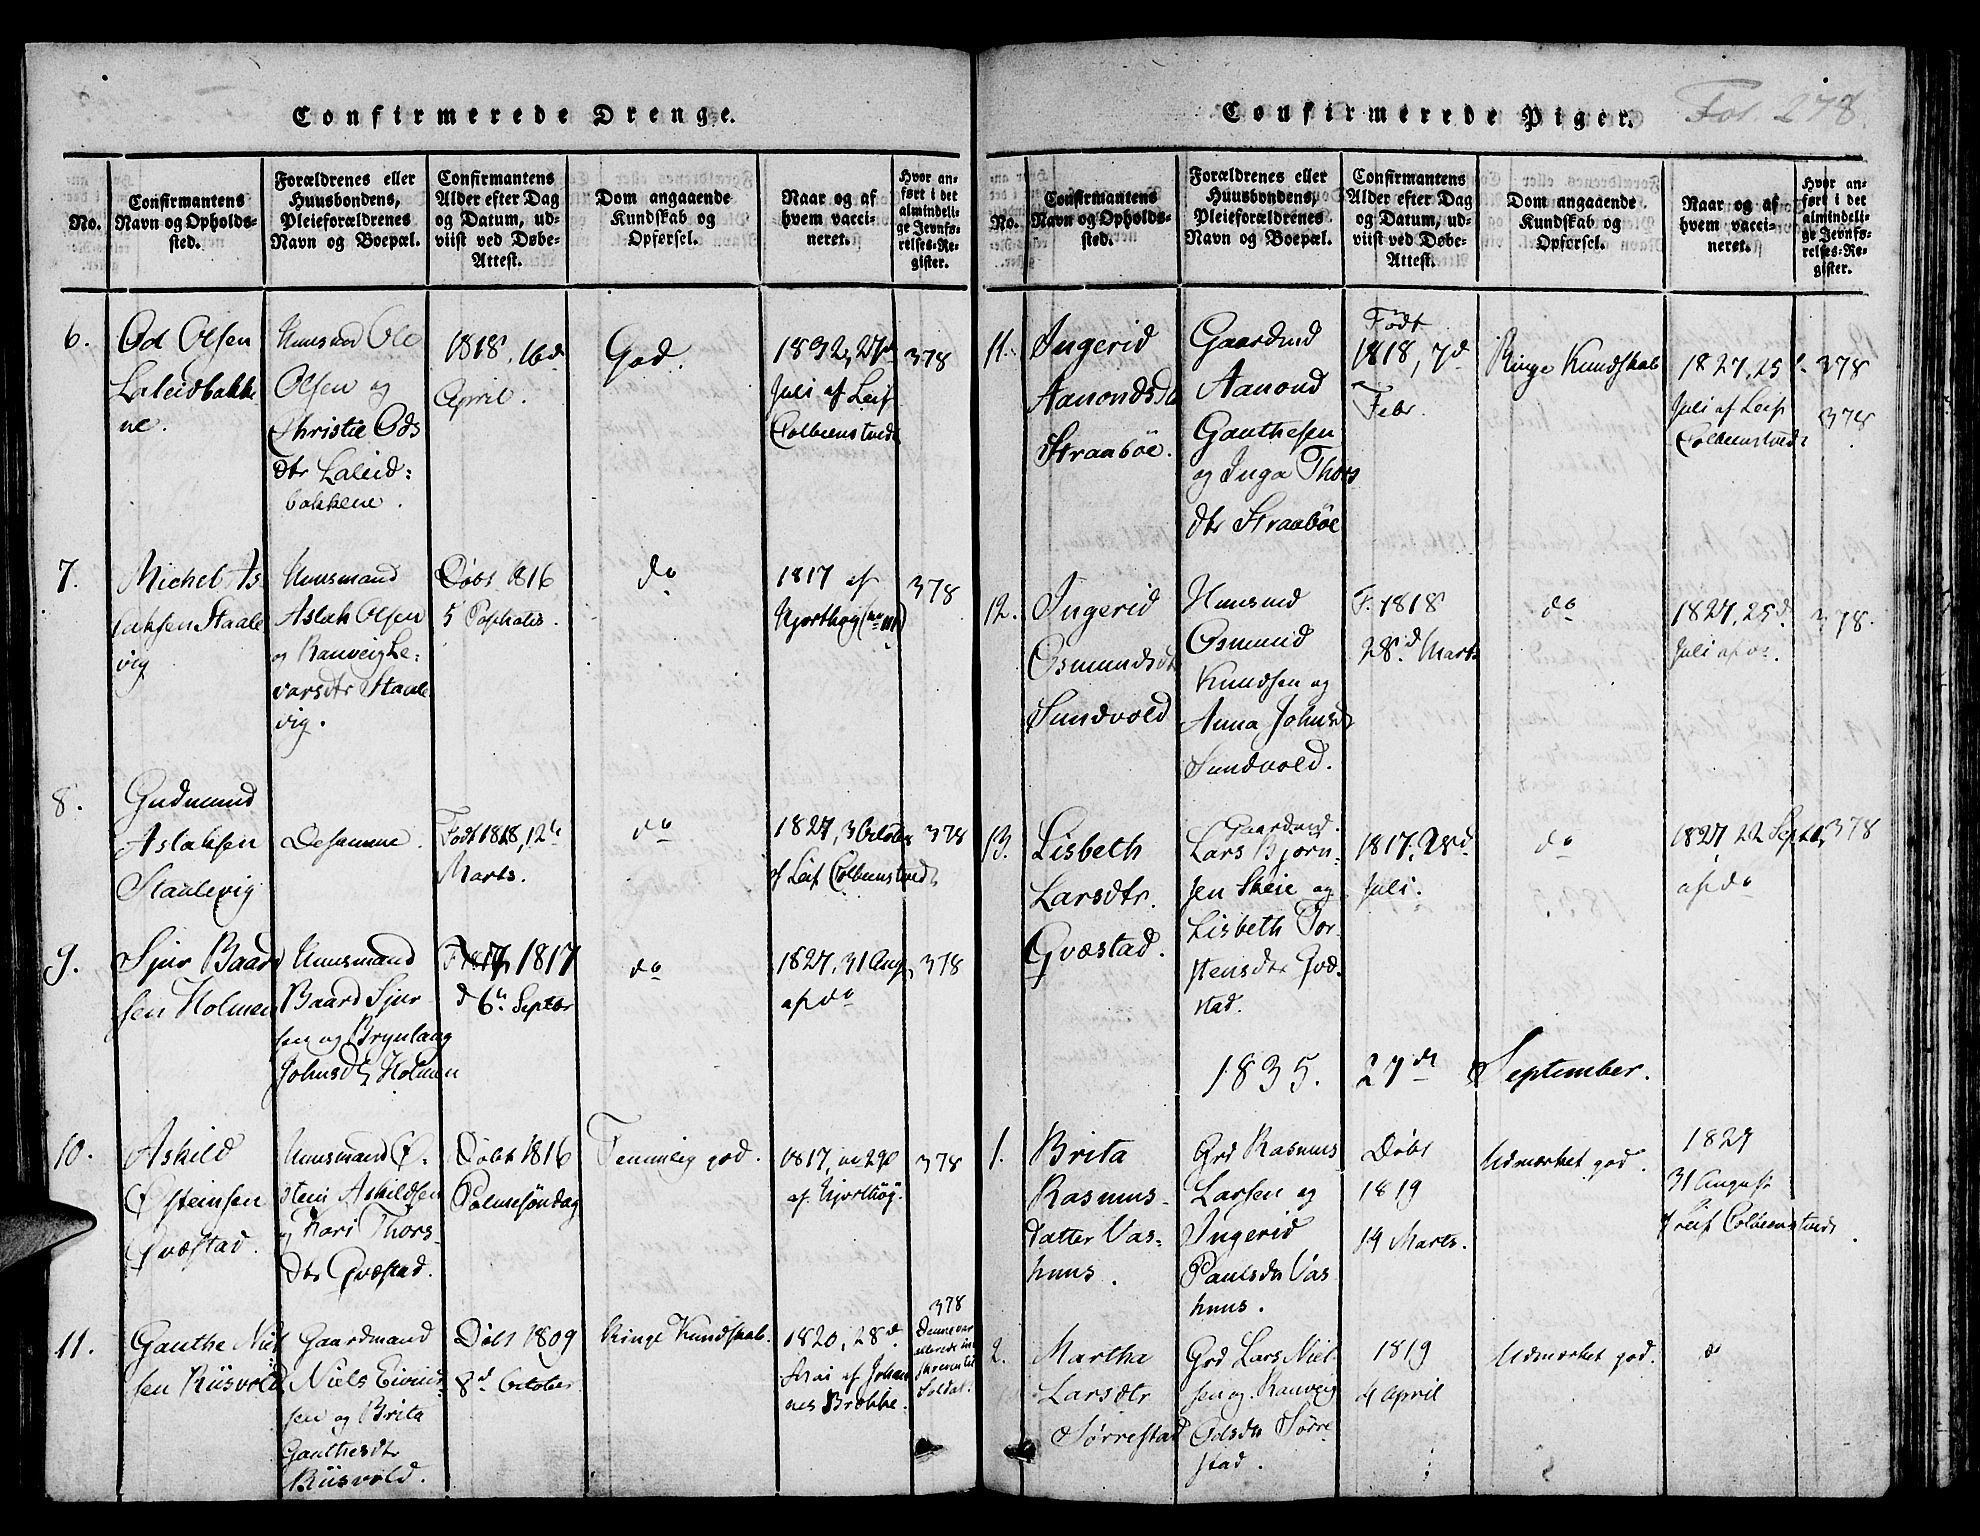 Confirmerede Drenge.
No.
Confirmantens
Navn og Opholds-
sted.
Forældrenes eller
Huusbondens,
Pleieforældrenes
Navn og Boepæl.
Confirmantens
Alder efter Dag
og Datum, ud-
viist ved Døbe-
Attest.
Dom angaaende
Kundskab og
Opførsel.
Naar og af
hvem vacci-
neret.
Hvor an-
ført i det
almindeli-
ge Jevnfø-
relses-Re-
gister.
6.
Od Olsen
Laleidbakke
ne.
Huusmd Ole
Olsen og
Christie Ods
dtr Laleid:
bakkene.
1818, 16d
April.
God.
1832, 27d
Juli af Leif
Colbeenstvedt
378
7.
Michel As
laksen Staale
vig
Huusmand
Aslak Olsen
og Ranveig Le:
varsdtr Staale
vig.
Døbt 1816
5 Paschatis.
do
1817 af
Hjorthøy
378
8.
Gudmund
Aslaksen
Staalevig
Desamme.
Født 1818, 12te
Marts.
do
1827, 3 October
af Leif Colbeenstvedt
378
9.
Sjur Baard
sen Holmen
Huusmand
Baard Sjur
sen og Brynlaug
Johnsdtr Holmen
F. 1817
d 6te Septbr
do
1827, 31 Aug.
af do
378
10.
Askild
Østeinsen
Qvæstad.
Huusmand Ø.
stein Askildsen
og Kari Thors-
dtr Qvæstad.
Døbt 1816
Palmesøndag
Temmelig god.
1817, no 290
af Hjorthøy.
378
11.
Gauthe Niel
sen Riisvold
Gaardmand
Niels Eivin-
sen og Brita
Gauthesdtr
Riisvold.
Døbt 1809
8d October
Ringe Kundskab.
1820, 28d
Mai af Johan
nes Brække.
378
Denne var
allerede ind
skreven til
Soldat.
Confirmerede Piger.
Fol. 278
No.
Confirmantens
Navn og Opholds-
sted.
Forældrenes eller
Huusbondens,
Pleieforældrenes
Navn og Boepæl.
Confirmantens
Alder efter Dag
og Datum, ud-
viist ved Døbe-
Attest.
Dom angaaende
Kundskab og
Opførsel.
Naar og af
hvem vacci-
neret.
Hvor an-
ført i det
almindeli-
ge Jevnfø-
relses-Re-
gister.
11.
Ingerid
Aamondsdtr
Straabøe.
Gaardmd
Aamond
Gauthesen
og Inga Thors
dtr Straabøe
Født
1818, 7d
Febr.
Ringe Kundskab
1827, 25
Juli af Leif
Colbeenstvedt
378
378
12.
Ingerid
Osmundsdtr
Sundvold
Huusmd
Osmund
Knudsen og
Anna Johnsdtr
Sundvold.
F. 1818
28.d Marts
do
1827, 25d.
Juli af do.
378.
13.
Lisbeth
Larsdtr.
Qvæstad.
Gaardmd.
Lars Bjørn-
sen Skeie og
Lisbeth Tor-
stensdtr Qvæ-
stad.
1817, 28d
Juli.
do
1827 22 Septbr
af do
378
1835. 27de September.
1.
Brita
Rasmus-
datter Vas-
huus.
Grd Rasmus
Larsen og
Ingerid
Paulsdtr Vas
huus.
Døbt
1819
14 Marts.
Udmærket god.
1827
31 August
af Leif Colbeenstvedt
2.
Martha
Larsdtr
Sørrestad
Grd Lars Niel-
sen og Ranveig
Odsdtr Sørre
stad.
1819
4 April
Udmærket god.
do